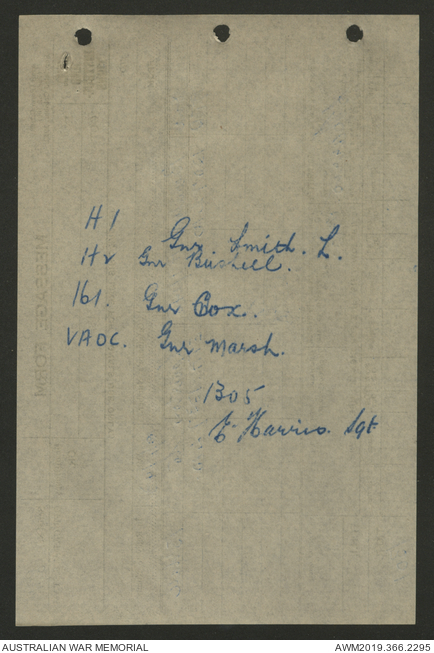 H1 Gnr Smith. L.
H2 Gnr Bushell.
161. Gnr Cox.
VADC. Gnr Marsh.
1305
Harris. Sgt
MESSAGE FORM
AUSTRALIAN WAR MEMORIAL
AWM2019.366.2295